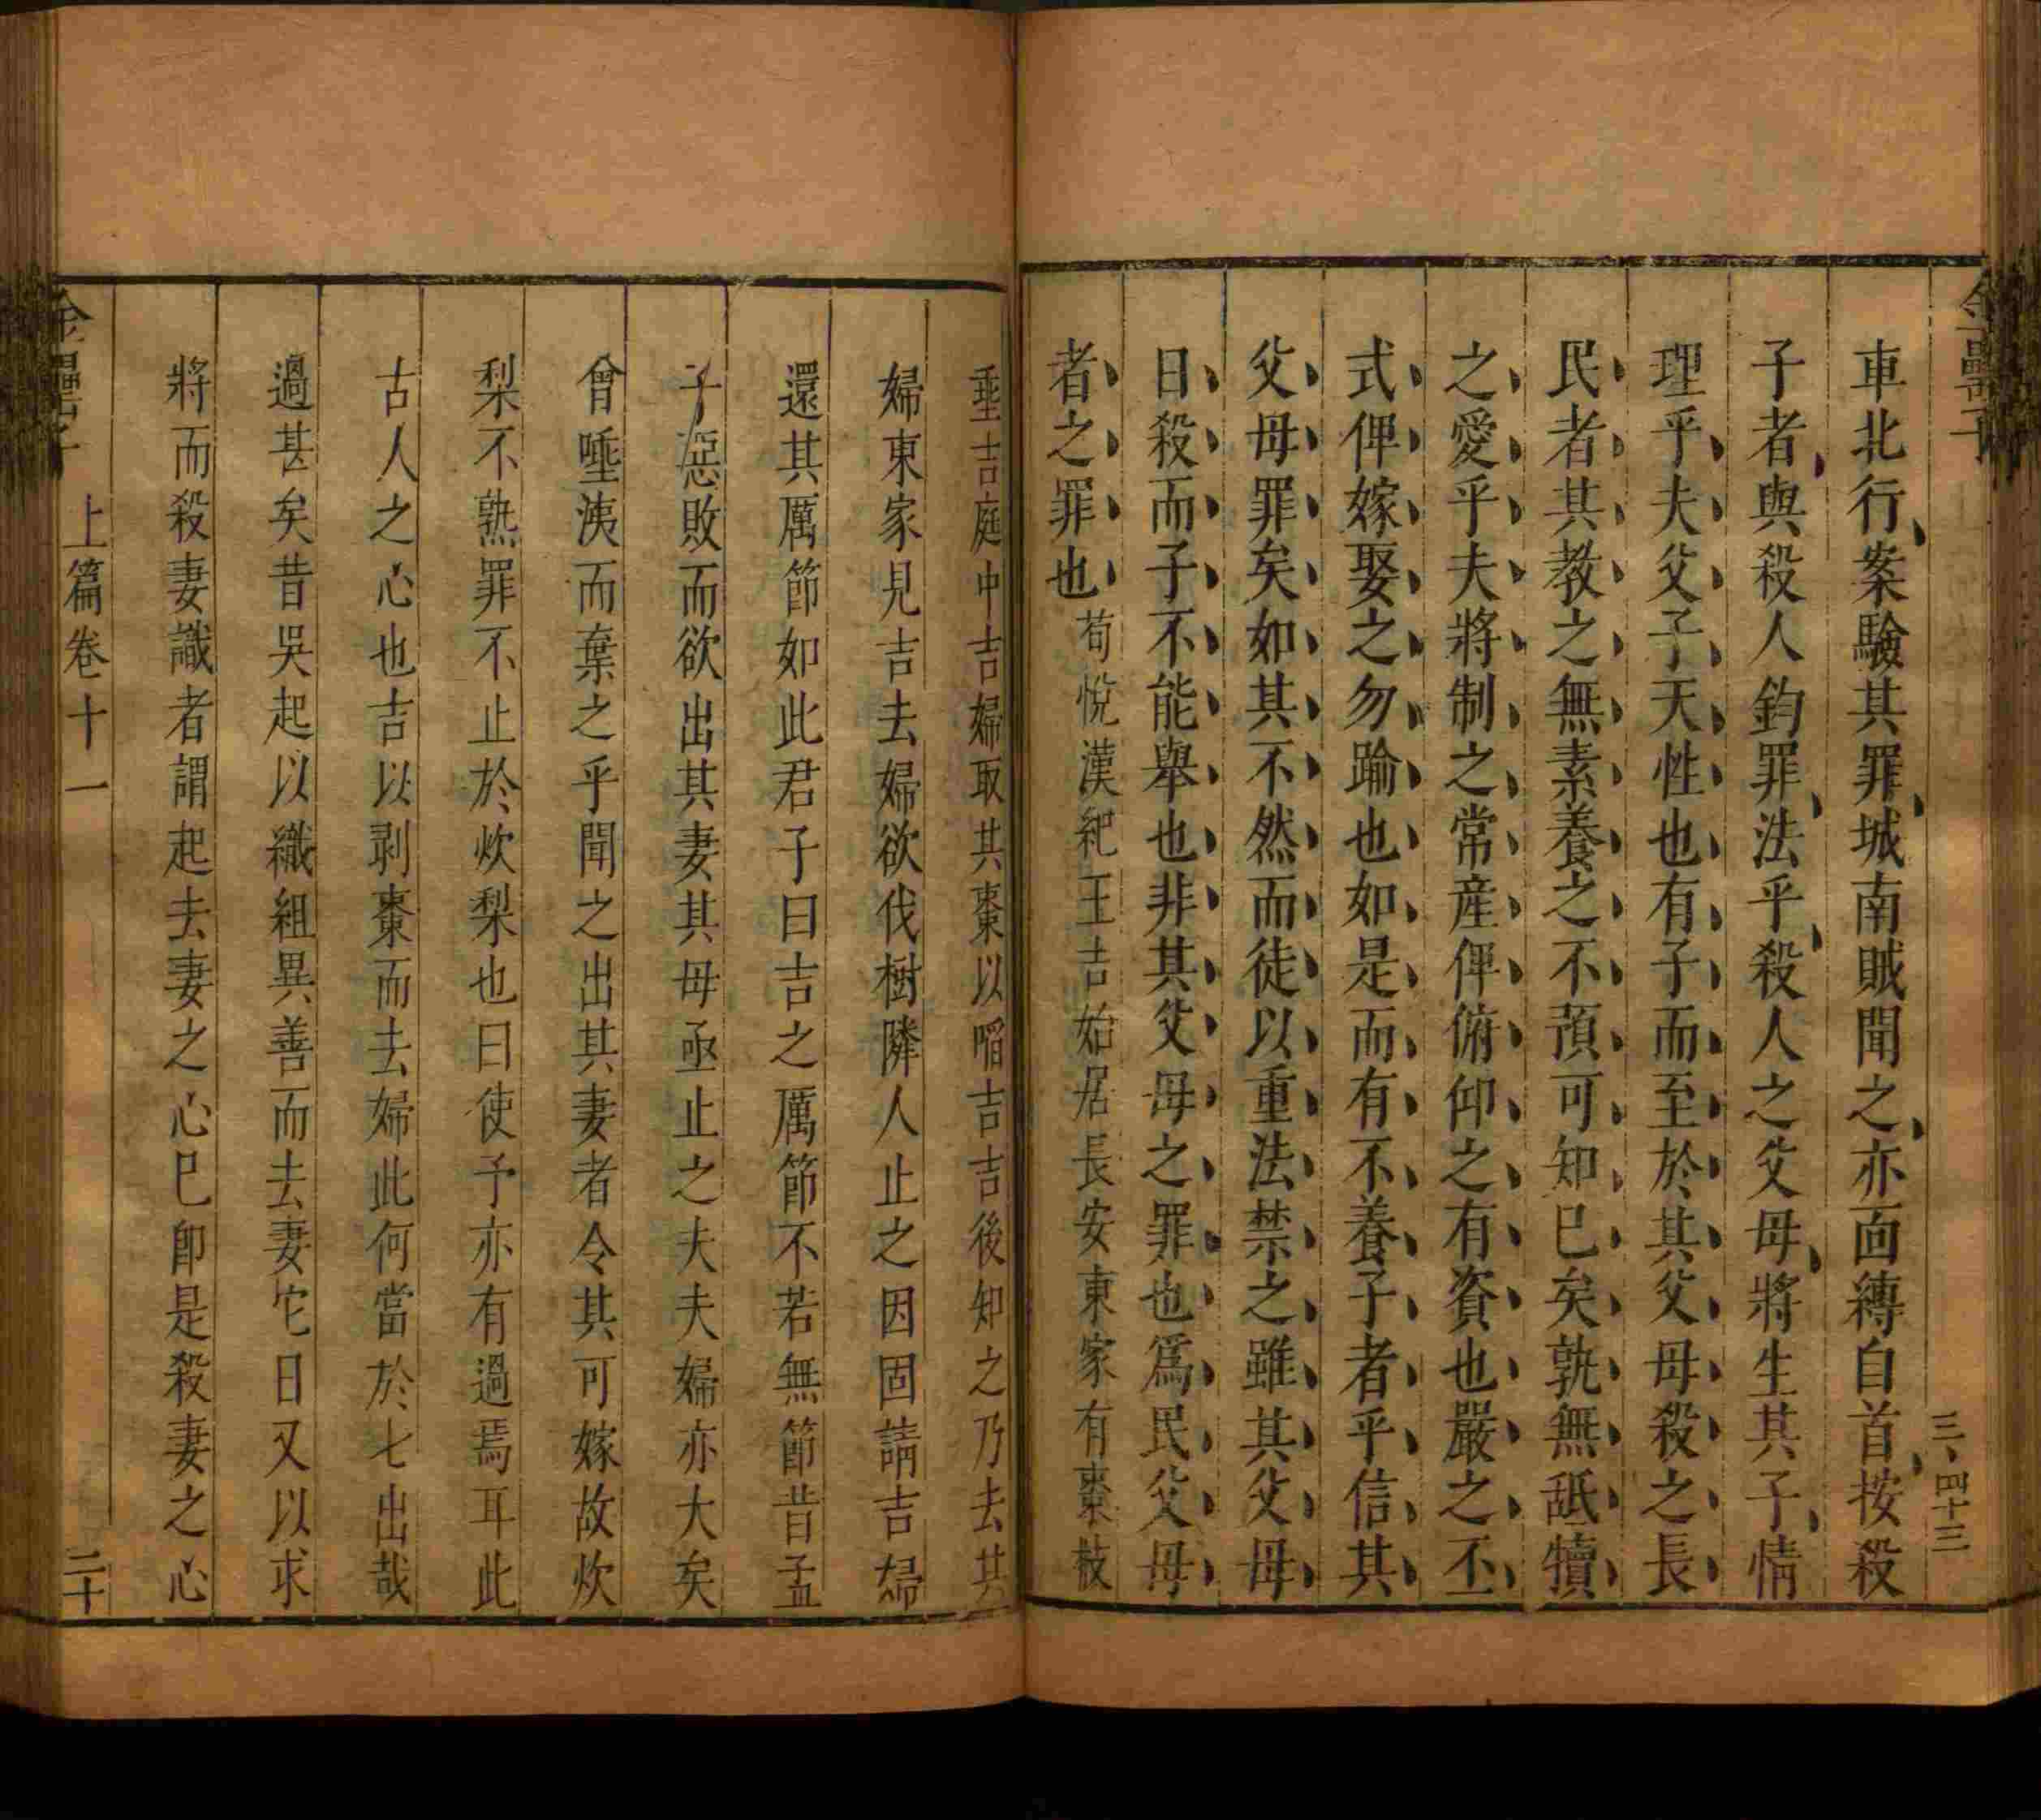 金罍子
三、四十三
車北行案驗其罪城南賊聞之亦面縛自首按殺
子者與殺人鈞罪法乎殺人之父母將生其子情
理乎夫父子天性也有子而至於其父母殺之長
民者其教之無素養之不預可知巳矣孰無舐犢
之愛乎夫將制之常産俾俯仰之有資也嚴之丕
式俾嫁娶之勿踰也如是而有不養子者乎信其
父母罪矣如其不然而徒以重法禁之雖其父母
日殺而子不能舉也非其父母之罪也爲民父母
者之罪也荀悅漢紀王吉始居長安東家有棗枝
埀吉庭中吉婦取其棗以啗吉吉後知之乃去其
婦東家見吉去婦欲伐樹隣人止之因固請吉婦
還其厲節如此君子曰吉之厲節不若無節昔孟
子惡敗而欲出其妻其母亟止之夫夫婦亦大矣
曾唾洟而棄之乎聞之出其妻者令其可嫁故炊
梨不熟罪不止於炊梨也曰使予亦有過焉耳此
古人之心也吉以剥棗而去婦此何當於七出哉
過甚矣昔吳起以織組異善而去妻它日又以求
將而殺妻識者謂起去妻之心巳卽是殺妻之心
金罍子
上篇卷十一
二十